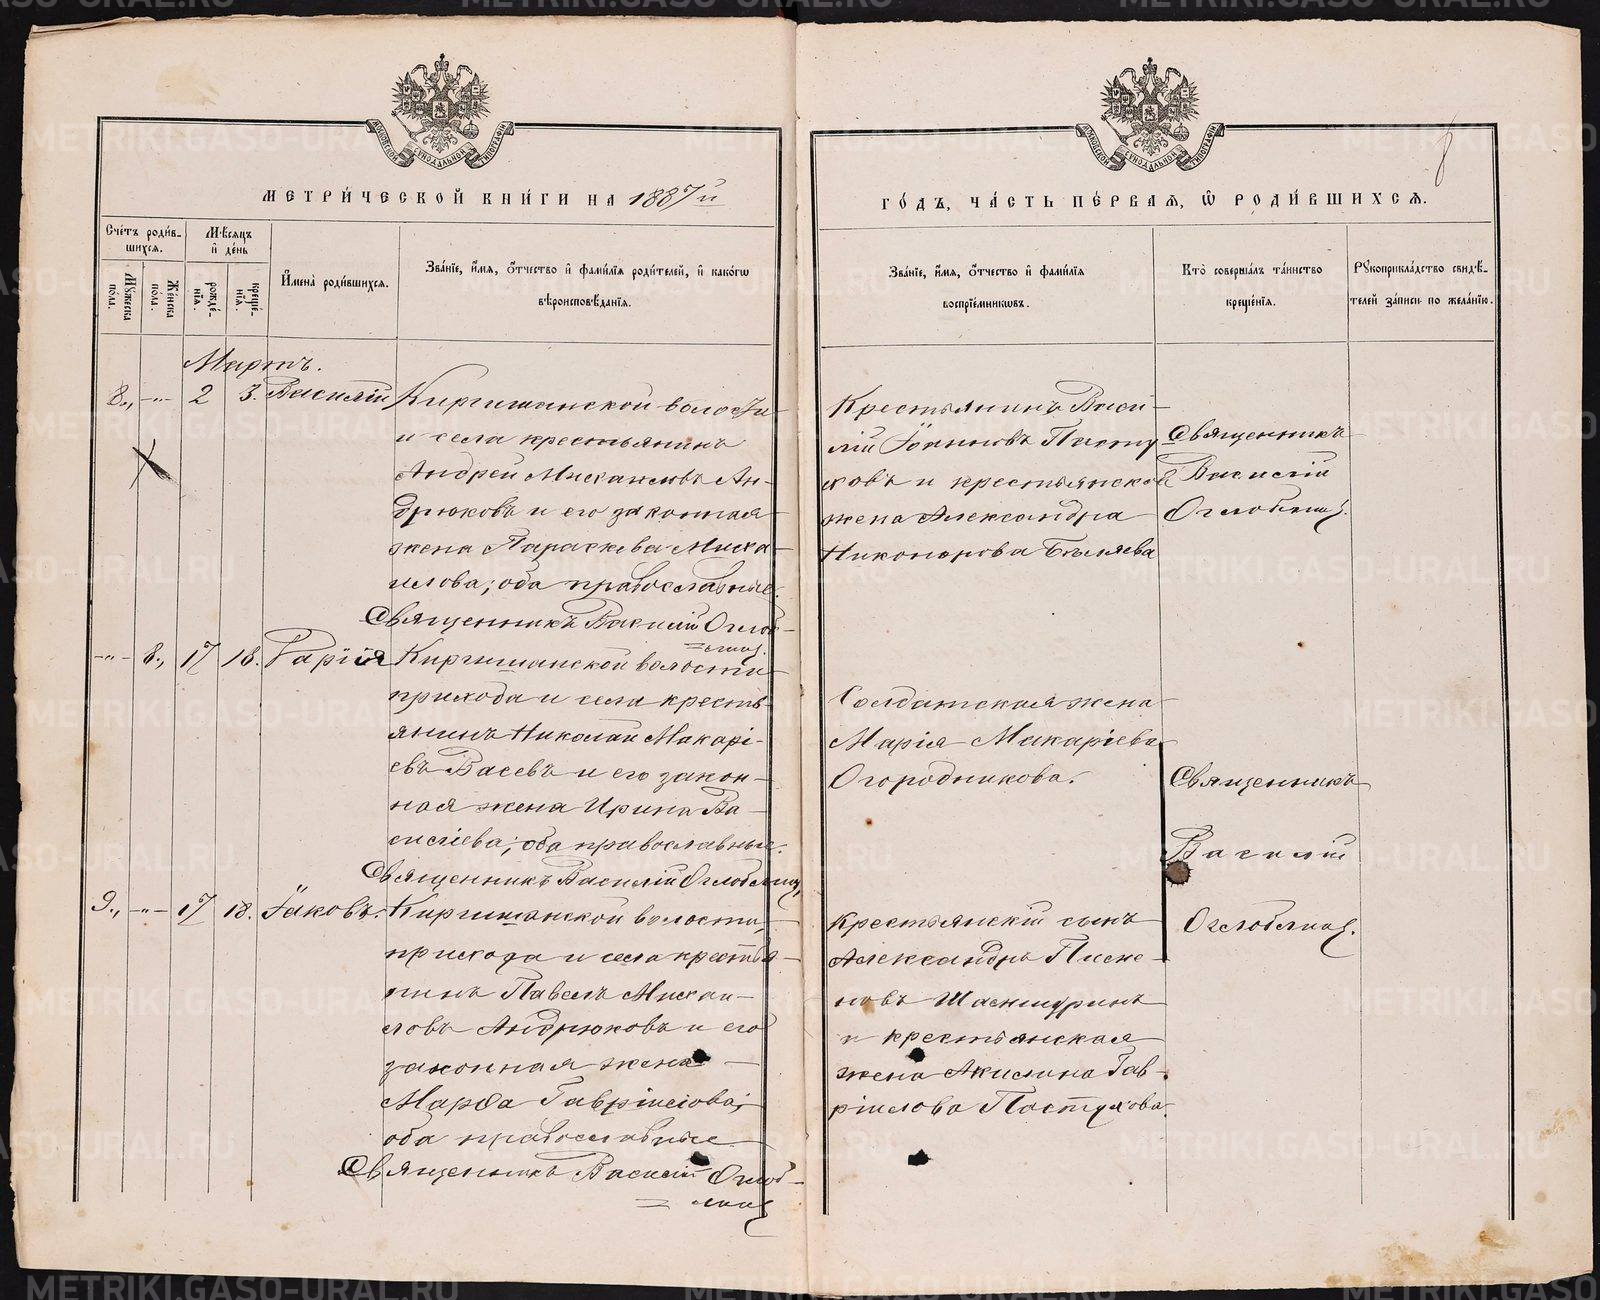 МЕТРИ́ЧЕСКОЙ КНИ́ГИ НА 1887й
ГО́ДЪ, ЧА́СТЬ ПЕ́РВАЯ, Ѿ РОДИ́ВШИХСЯ.
Сче́тъ роди́в-
шихся.
Му́жеска
по́ла.
Же́нска
по́ла.
Мѣсяцъ
и҆ де́нь
рожде́-
нїя.
креще́-
нїя.
И҆мена̀ роди́вшихся.
Зва́нїе, и҆́мя, ѻ҆́тчество и҆ фами́лїя роди́телей, и҆ како́гѡ
вѣроисповѣ́данїя.
Зва́нїе, и҆́мя, ѻ҆́тчество и҆ фами́лїя
воспрїе́мникѡвъ.
Кто̀ соверша́лъ та́инство
креще́нїя.
Рꙋкоприкла́дство свидѣ́-
телей за́писи по жела́нїю.
Мартъ.
8., -"- 2 3. Василій
Киргишанской волости
и села крестьянинъ
Андрей Михаиловъ Ан-
дрюковъ и его законная
жена Параскева Миха-
илова; оба православные.
Священникъ Василій Оглоб-
линъ.
Крестьянинъ Васи-
лій Іоанновъ Пасту
ховъ и крестьянская
жена Александра
Никонорова Бѣляева
Священникъ
Василій
Оглоблинъ.
-"- 8., 17 18. Дарія
Киргишанской волости
прихода и села кресть-
янинъ Николай Макарі-
евъ Васевъ и его закон-
ная жена Ирина Ва-
силіева; оба православные.
Священникъ Василій Оглоблинъ,
Солдатская жена
Марія Макаріева
Огородникова.
Священникъ
Василій
Оглоблинъ.
9., -"- 17 18. Іаковъ.
Киргишанской волости,
прихода и села крестья-
нинъ Павелъ Михаи-
ловъ Андрюковъ и его
законная жена
Марѳа Гавріилова;
оба православные
Священникъ Василій Оглоб-
линъ
Крестьянскій сынъ
Александръ
новъ
и крестьянская
жена Акилина Гав-
ріилова Пастухова.
МОСКОВСКОЙ СѴНОДАЛЬНОЙ ТИПОГРАФІИ
МОСКОВСКОЙ СѴНОДАЛЬНОЙ ТИПОГРАФІИ
METRIKI.GASO-URAL.RU